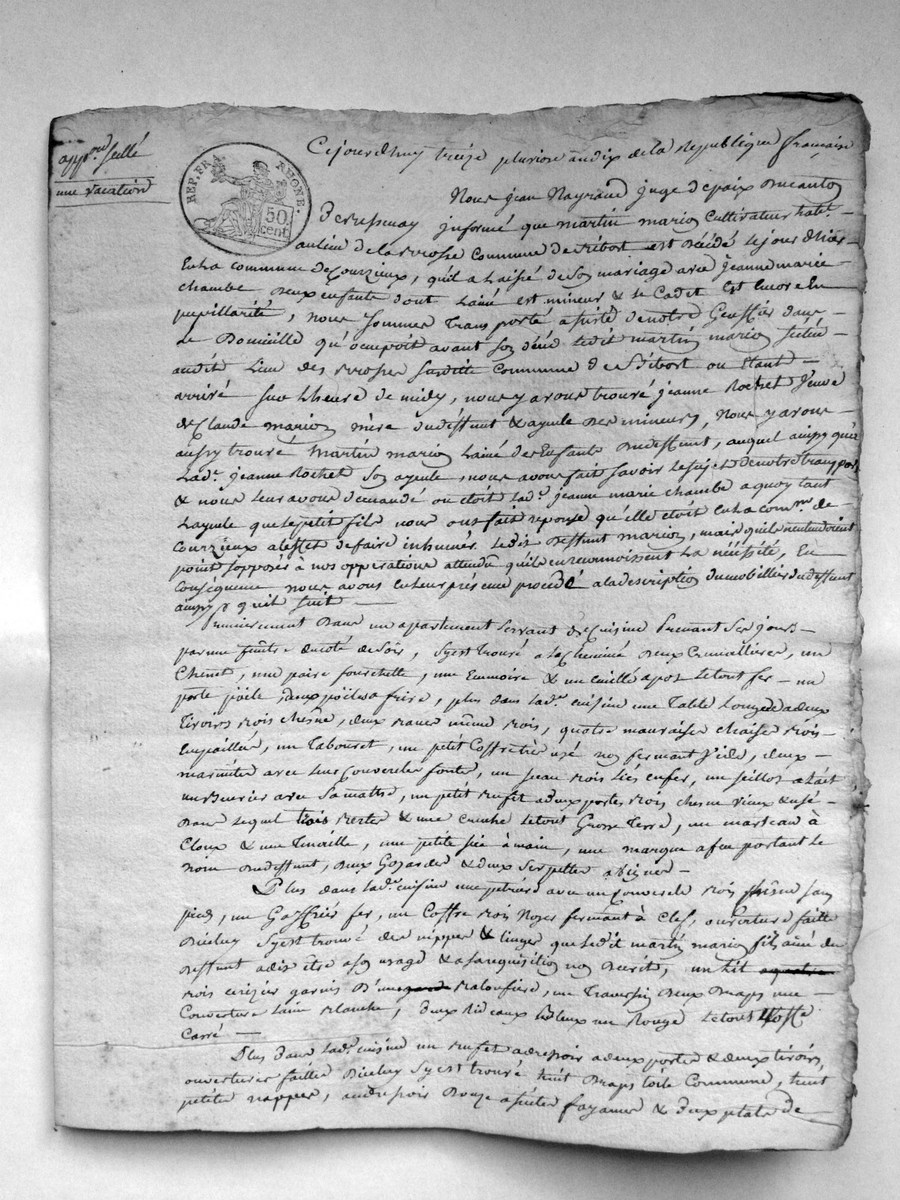 appon scellé
une vacation
REP. FR. RHONE.
50 cent.
Cejourdhuy treize pluviose an dix de la Republique française
Nous jean Nayrand juge de paix Ducanton
informé que martin marion Cultivateur habt.
au lieu de la Commune de est Décédé le jour d'hier
En La commune de Courzieux, qu'il a Laissé de son mariage avec jeanne marie
chambe Deux enfants dont Lainé est mineur & le Cadet Est Encore En
pupillarité, nous sommes transporté assisté de notre Greffier dans
Le Domicille qu'ocupoit avant son décé ledit martin marion
audit Lieu des susditte Commune de ou Etant
arrivé sur L'heure de midy, nous y avons trouvé jeanne Rochet Veuve
de Claude marion mère du deffunt & ayeule Des mineurs, Nous y avons
aussy trouvé Martin marion Lainé des Enfants Du deffunt, auquel ainsy qu'a
Lade. jeanne Rochet son ayeule, nous avons fait savoir le sujet de notre transport
& nous leur avons demandé ou étoit lade. jeanne marie chambe a quoy tant
Layeule que le petit fils nous ont fait reponse qu'elle étoit En La comme. de
Courzieux a leffet de faire inhumer ledit Deffunt marion, mais qu'ils n'entendoient
point s'opposer à nos opperations attendu qu'ils en reconnoissent La néssité, En
conséquence nous avons en leur présence procédé a la description du mobillier du deffunt
ainsy & quil suit
Premierement Dans un apartement servant de Cuisine Prenant ses jours
par une fenêtre du coté de Soir, S'y est trouvé a la Cheminée Deux Cramallieres, un
Chenet, une paire une & un le tout fer un
porte poële, deux poëles a frire, plus dans lade. cuisine une Table Longue a deux
tiroirs bois chesne, deux bancs même bois, quatre mauvaise chaise bois
Empaillée, un Tabouret, un petit Coffre très uzé non fermant Vuide, deux
marmites avec leur Couvercle fonte, un seau bois liés en fer, un seillot a lait
un avec sa un petit Bufet a Deux portes bois chesne vieux & usé
Dans lequel trois & une cruche le tout Grosse Terre, un marteau à
Cloux & une Tenaille, une petite sie a main, une marque a feu portant le
nom Du deffunt, Deux Goyardes & deux serpettes a vigne
Plus dans lade. cuisine une pétrière avec un Couvercle bois sans
pieds, un fer, un Coffre bois Noyer fermant à Clef, ouverture faitte
Dicelluy S'y est trouvé des nippes & linges que ledit martin marion fils ainé du
Deffunt a dit être a son usage & a sa requisition non Décrit, un Lit
bois cerizier garnis D'une Baloufiere, un Traversin Deux Draps une
Couverture Laine blanche, Deux Rideaux un Rouge le tout
Carré
Plus dans lade. cuisine un Bufet a dressoir a deux portes & deux tiroirs
ouverture faitte Dicelluy S'y est trouvé huit Draps toile Commune, huit
petites nappes, au dressoir Douze fayance & deux plats de